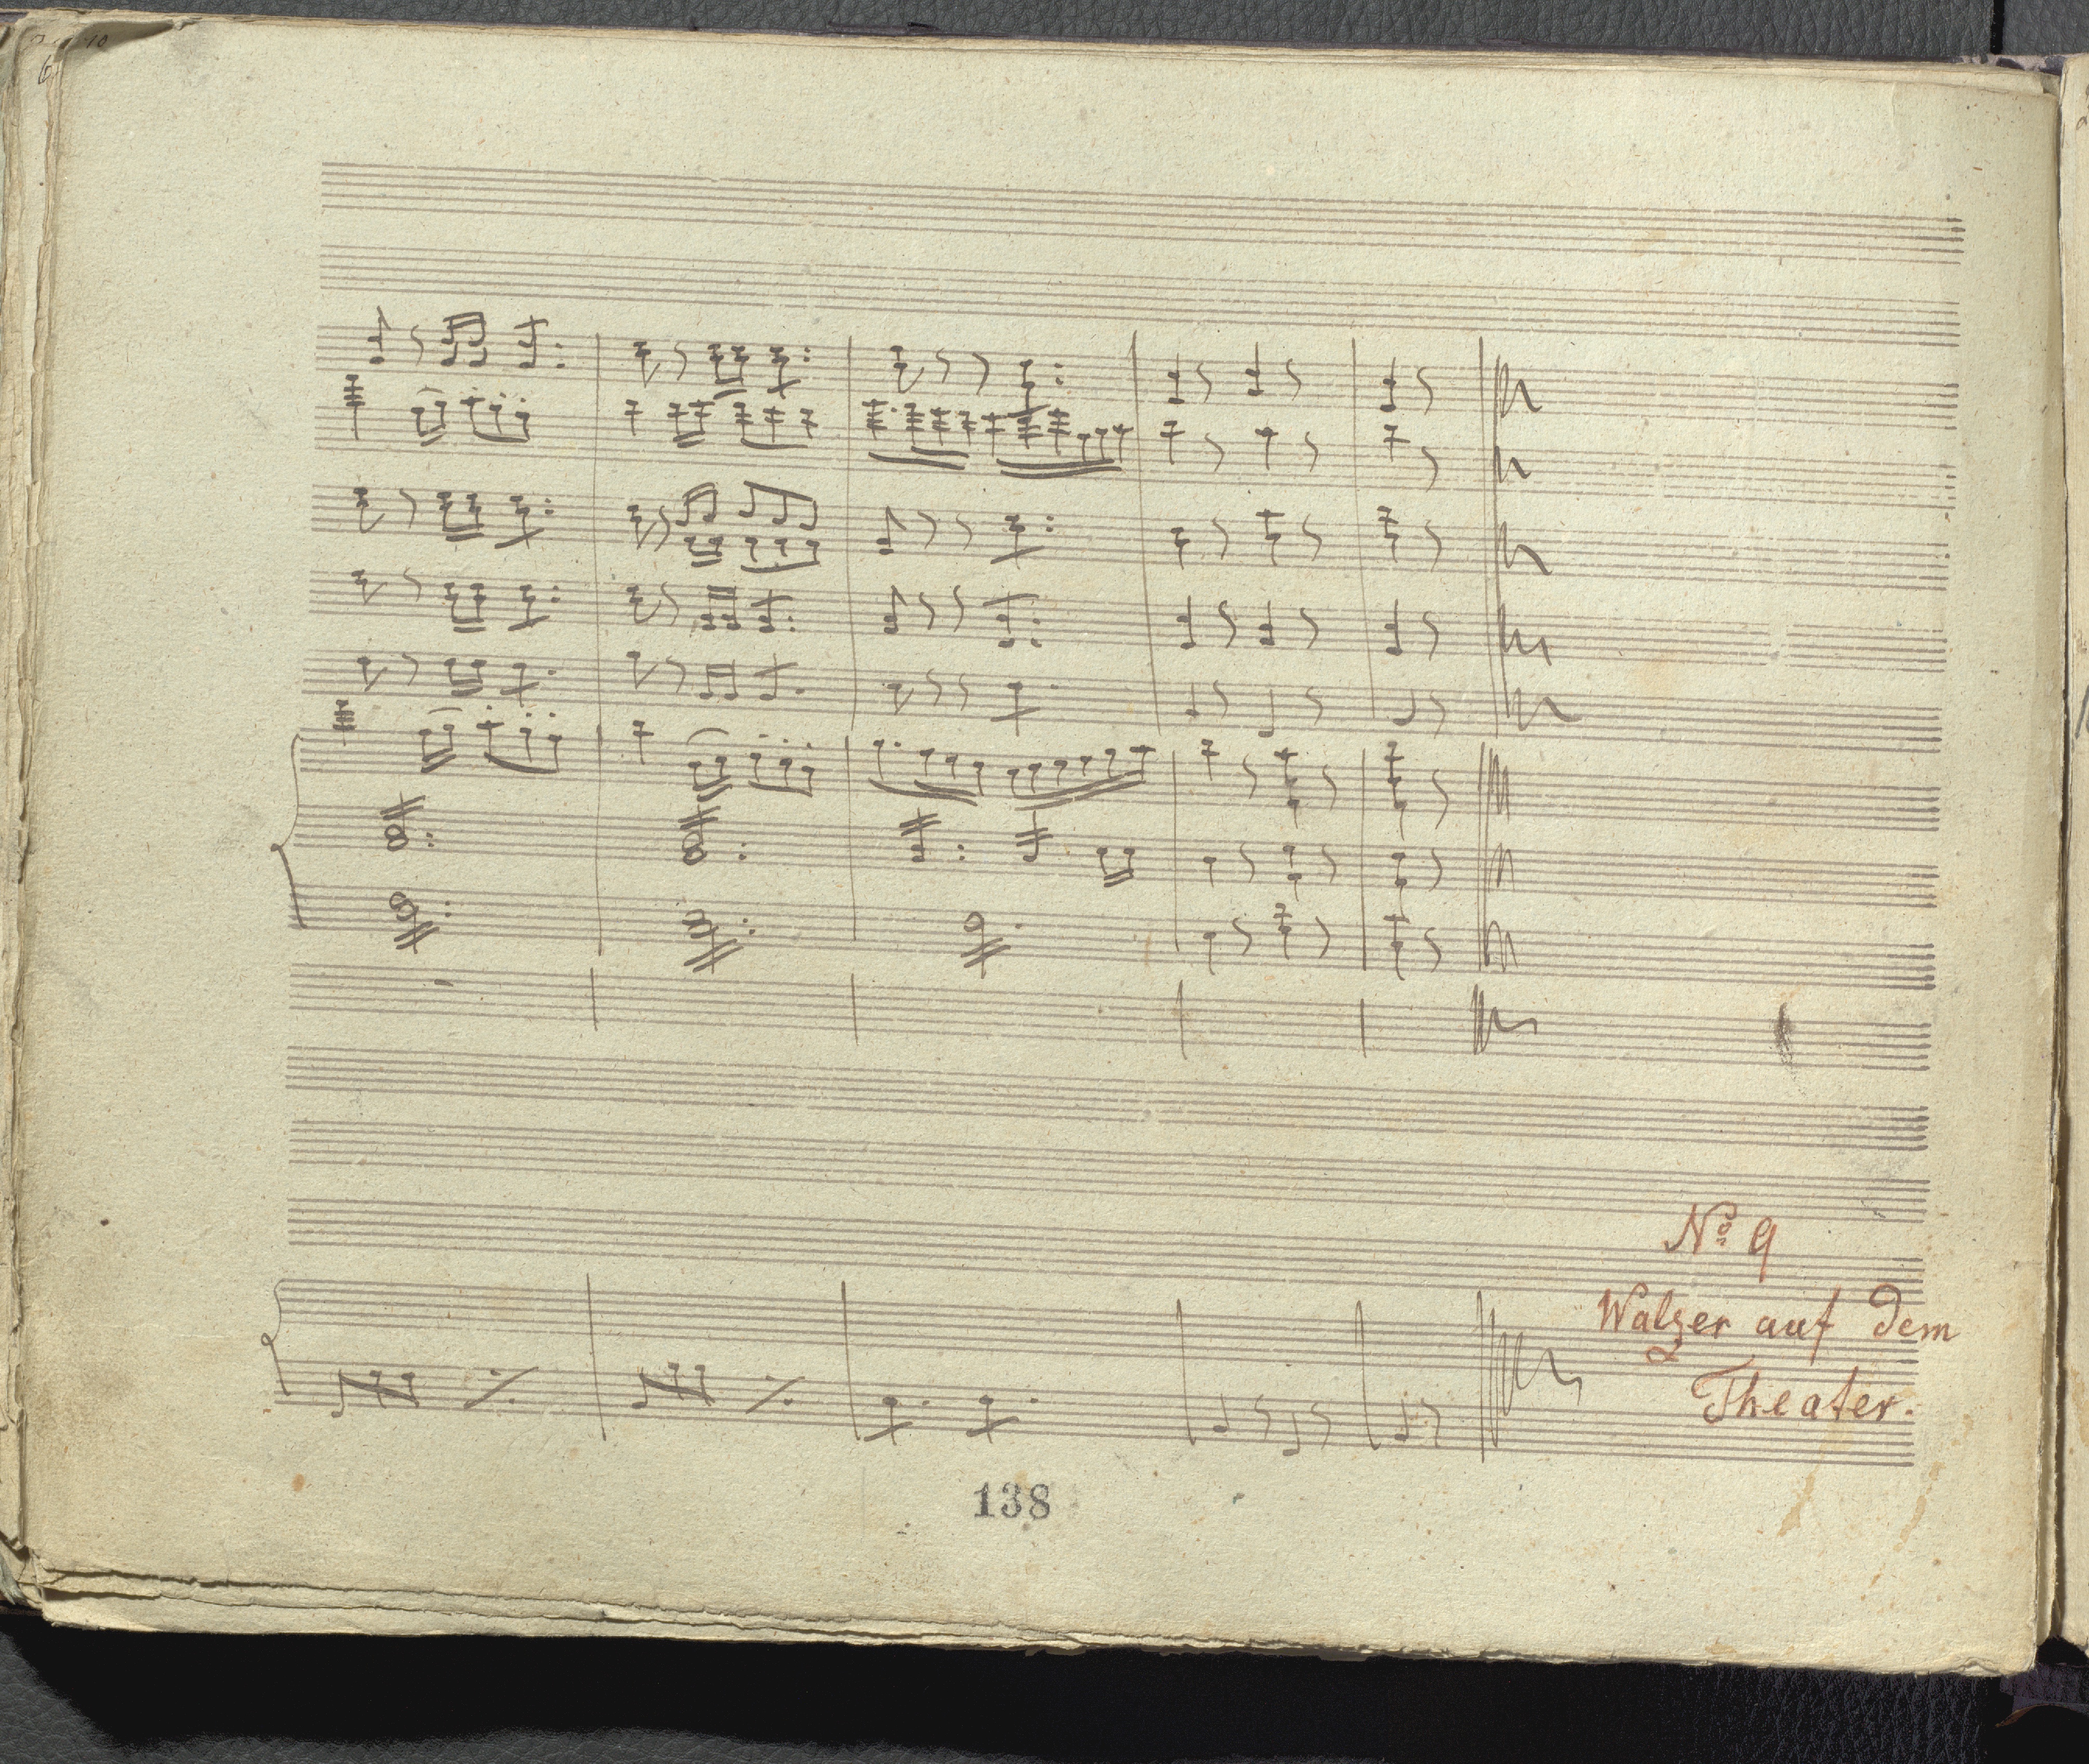 No 9
Walzer auf dem
Theater.
138